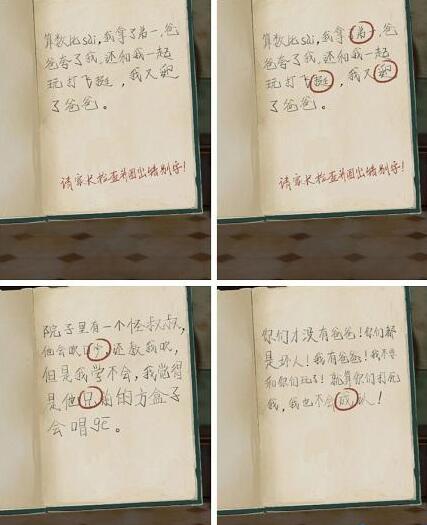 算数比sai,我拿了弟一,爸
爸夸了我,还和我一起
玩打飞挺,我又
了爸爸。
请家长检查并圈出错别字!
算数比sai,我拿了弟一,爸
爸夸了我,还和我一起
玩打飞挺,我又
了爸爸。
请家长检查并圈出错别字!
院子里有一个怪叔叔,
他会吹口今,还教我吹,
但是我学不会,我觉得
是他兄前的方盒子
会唱gē。
你们才没有爸爸!你们都
是坏人!我有爸爸!我不要
和你们玩了!就算你们打死
我,我也不会成认!